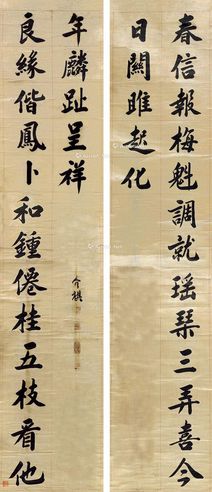 春信報梅魁調就瑶琹三弄喜今
日關雎起化
良緣偕鳳卜和鍾僊桂五枝看他
年麟趾呈祥
介祺